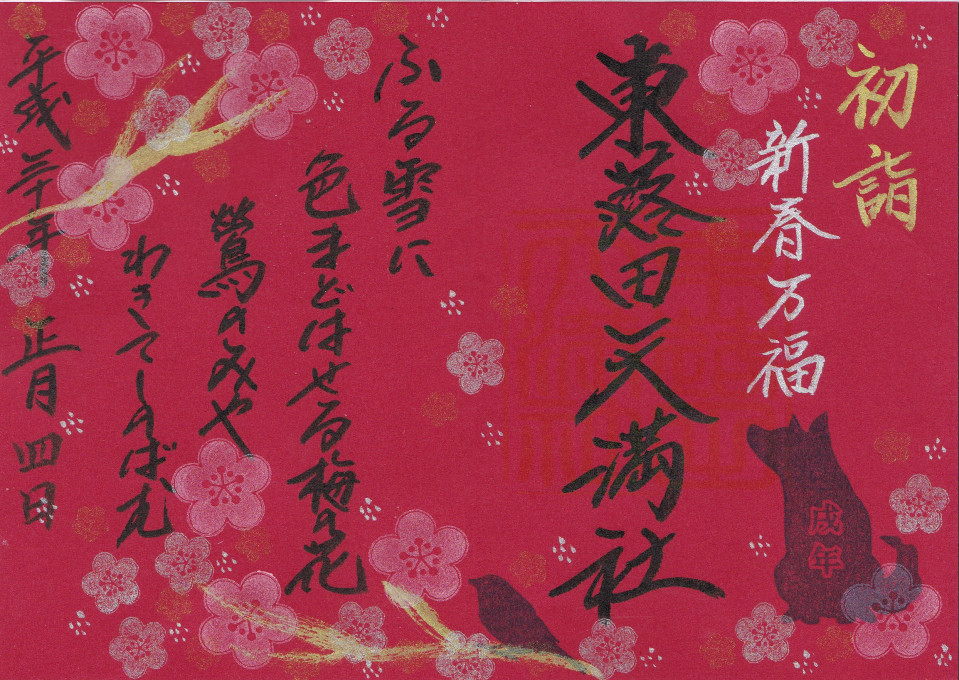 初詣
新春万福
戌年
東蕗田天満社
ふる雪に
色まどはせる梅の花
鶯のみや
わきてしのばむ
平成三十年 正月四日